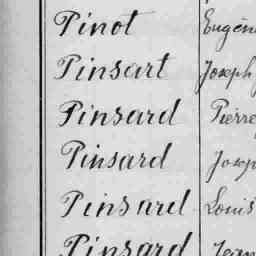 Pinot Eugèn
Pinsart Joseph
Pinsard Pierre
Pinsard Josep
Pinsard Louis
Pinsard Jean